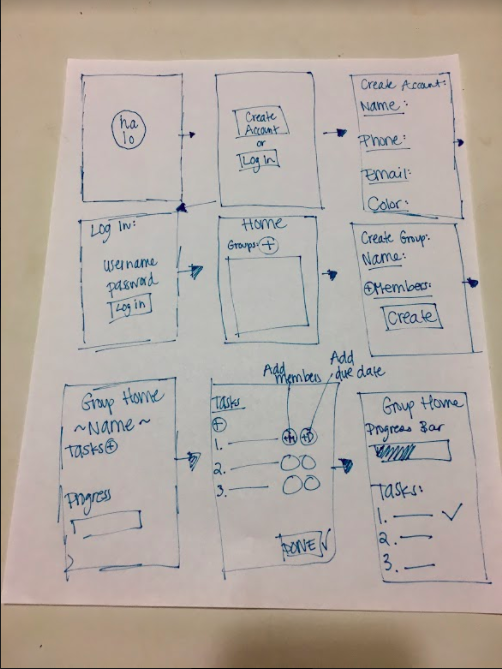 ha
lo
Create
Account
or
Log in
Create Account:
Name:
Phone:
Email:
Color:
Log In:
username
password
Log in
Home
Groups: +
Create Group:
Name:
+Members:
Create
Group Home
~Name~
Tasks+
Progress
Add
members
Add
due date
Tasks
+
1.
2.
3.
DONE ✓
Group Home
Progress Bar
Tasks:
1. ✓
2.
3.